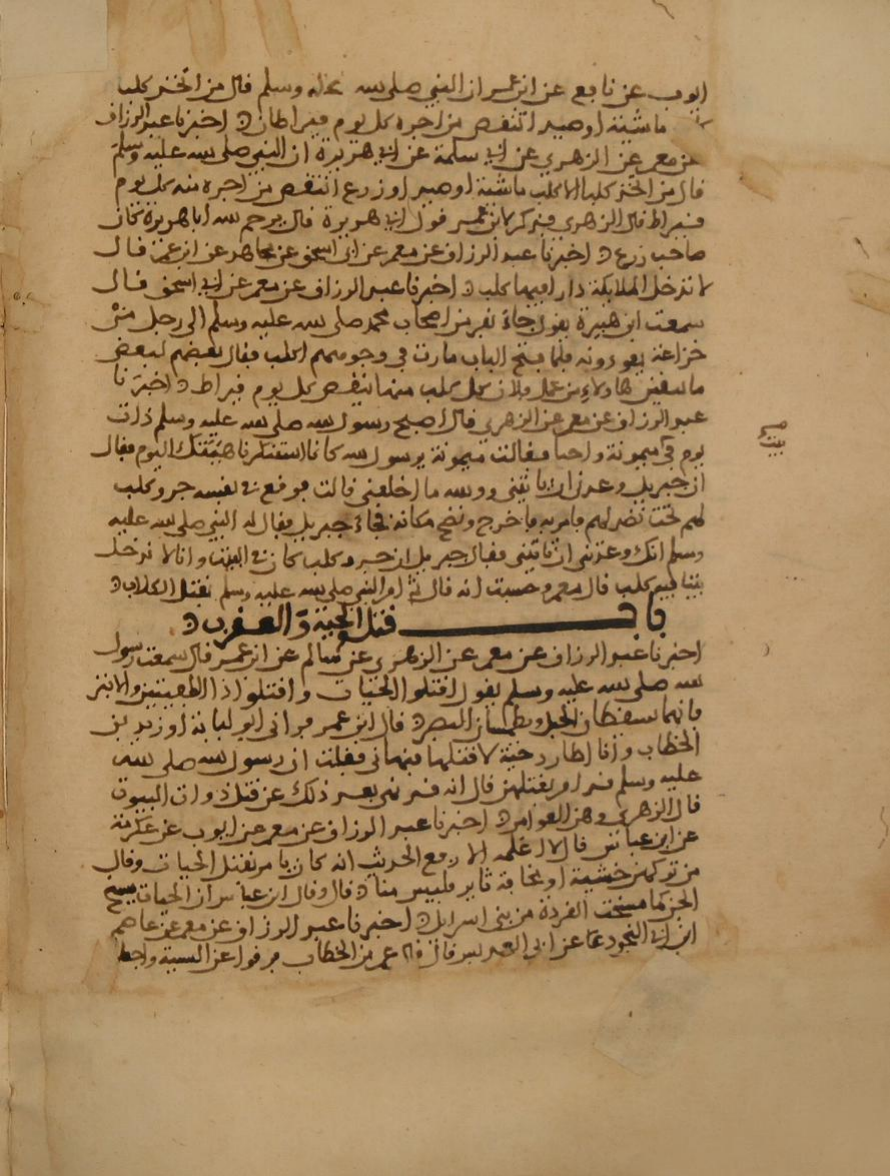 ايوب عن نافع عن ابن عمر ان النبي صلى الله عليه وسلم قال من اتخذ كلبا
ماشية او صيد انتقص من اجره كل يوم قيراطان اخبرنا عبد الرزاق
عن معمر عن الزهري عن ابي سلمة عن ابي هريرة ان النبي صلى الله عليه وسلم
قال من اتخذ كلبا الا كلب ماشية او صيد او زرع انتقص من اجره منه كل يوم
قيراط قال الزهري فذكر لابن عمر قول ابي هريرة قال يرحم الله ابا هريرة كان
صاحب زرع اخبرنا عبد الرزاق عن معمر عن ابي اسحق عن مجاهد عن ابن عمر قال
لا تدخل الملايكة دارا فيها كلب اخبرنا عبد الرزاق عن معمر عن ابي اسحق قال
سمعت ابن هبيرة يقول جاء نفر من اصحاب محمد صلى الله عليه وسلم الى رجل من
خزاعة يعودونه فلما فتح الباب ثارت في وجوههم اكلب فقال بعضهم لبعض
ما تبقين هاولاء من عمل فلان كل كلب منها ينقص كل يوم قيراط اخبرنا
عبد الرزاق عن معمر عن الزهري قال اصبح رسول الله صلى الله عليه وسلم ذات
يوم في ميمونة واجما فقالت ميمونة يرسول الله كانا استنكرنا هيئتك اليوم فقال
ان جبريل وعدني ان ياتيني ووالله ما اخلفني قالت فوقع في نفسه جرو كلب
لهم تحت نضد لهم فامر به فاخرج ونضح مكانه فجاء جبريل فقال له النبي صلى الله عليه
وسلم انك وعدتني ان تاتيني فقال جبريل ان جرو كلب كان في البيت وانا لا ندخل
بيتا فيه كلب قال معمر وحسبت انه قال ثم امر النبي صلى الله عليه وسلم بقتل الكلاب
باب قتل الحية والعقرب
اخبرنا عبد الرزاق عن معمر عن الزهري عن سالم عن ابن عمر قال سمعت رسول
الله صلى الله عليه وسلم يقول اقتلوا الحيات واقتلوا ذا الطفيتين والابتر
فانهما يسقطان الحبل ويطمسان البصر قال ابن عمر فراني ابو لبابة او زيد بن
الخطاب وانا اطارد حية لاقتلها فنهاني فقلت ان رسول الله صلى الله
عليه وسلم قد امر بقتلهن قال انه قد نهى بعد ذلك عن قتل ذوات البيوت
قال الزهري وهن العوامر اخبرنا عبد الرزاق عن معمر عن ايوب عن عكرمة
عن ابن عباس قال لا اعلمه الا رفع الحديث انه كان يامر بقتل الحيات وقال
من تركهن خشية او مخافة ثاير فليس منا قال وقال ابن عباس ان الحيات مسخ
الجن كما مسخت القردة من بني اسرايل اخبرنا عبد الرزاق عن معمر عن عاصم
ابن ابي النجود عن ابي العدبس قال عمر بن الخطاب فرقوا عن المنية واجعلوا
بيت
صح